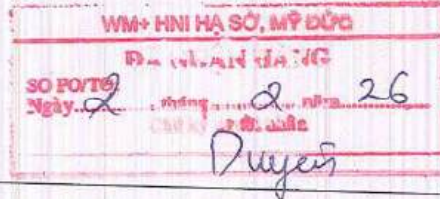 WM+ HNI HẠ SỞ, MỸ ĐỨC
ĐÃ NHẬN HÀNG
SO PO/TO
Ngày 2 tháng 2 năm 26
Duyên